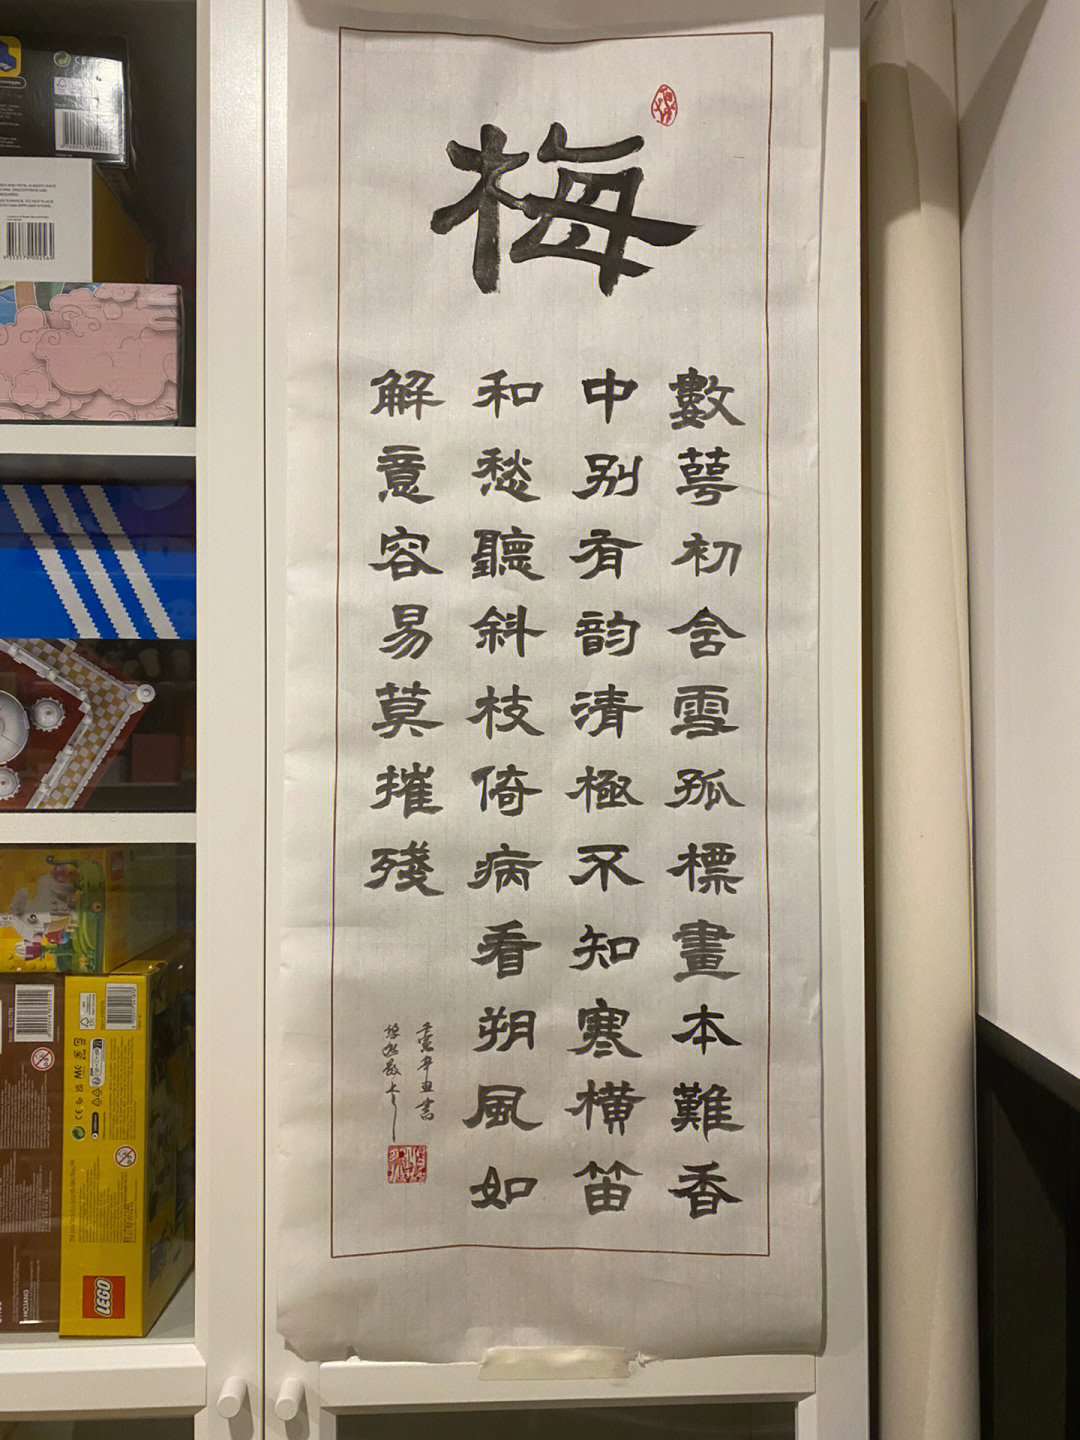 梅
數萼初含雪孤標畫本難香
中别有韵清極不知寒橫笛
和愁聽斜枝倚病看朔風如
解意容易莫摧殘
辛丑書
LEGO